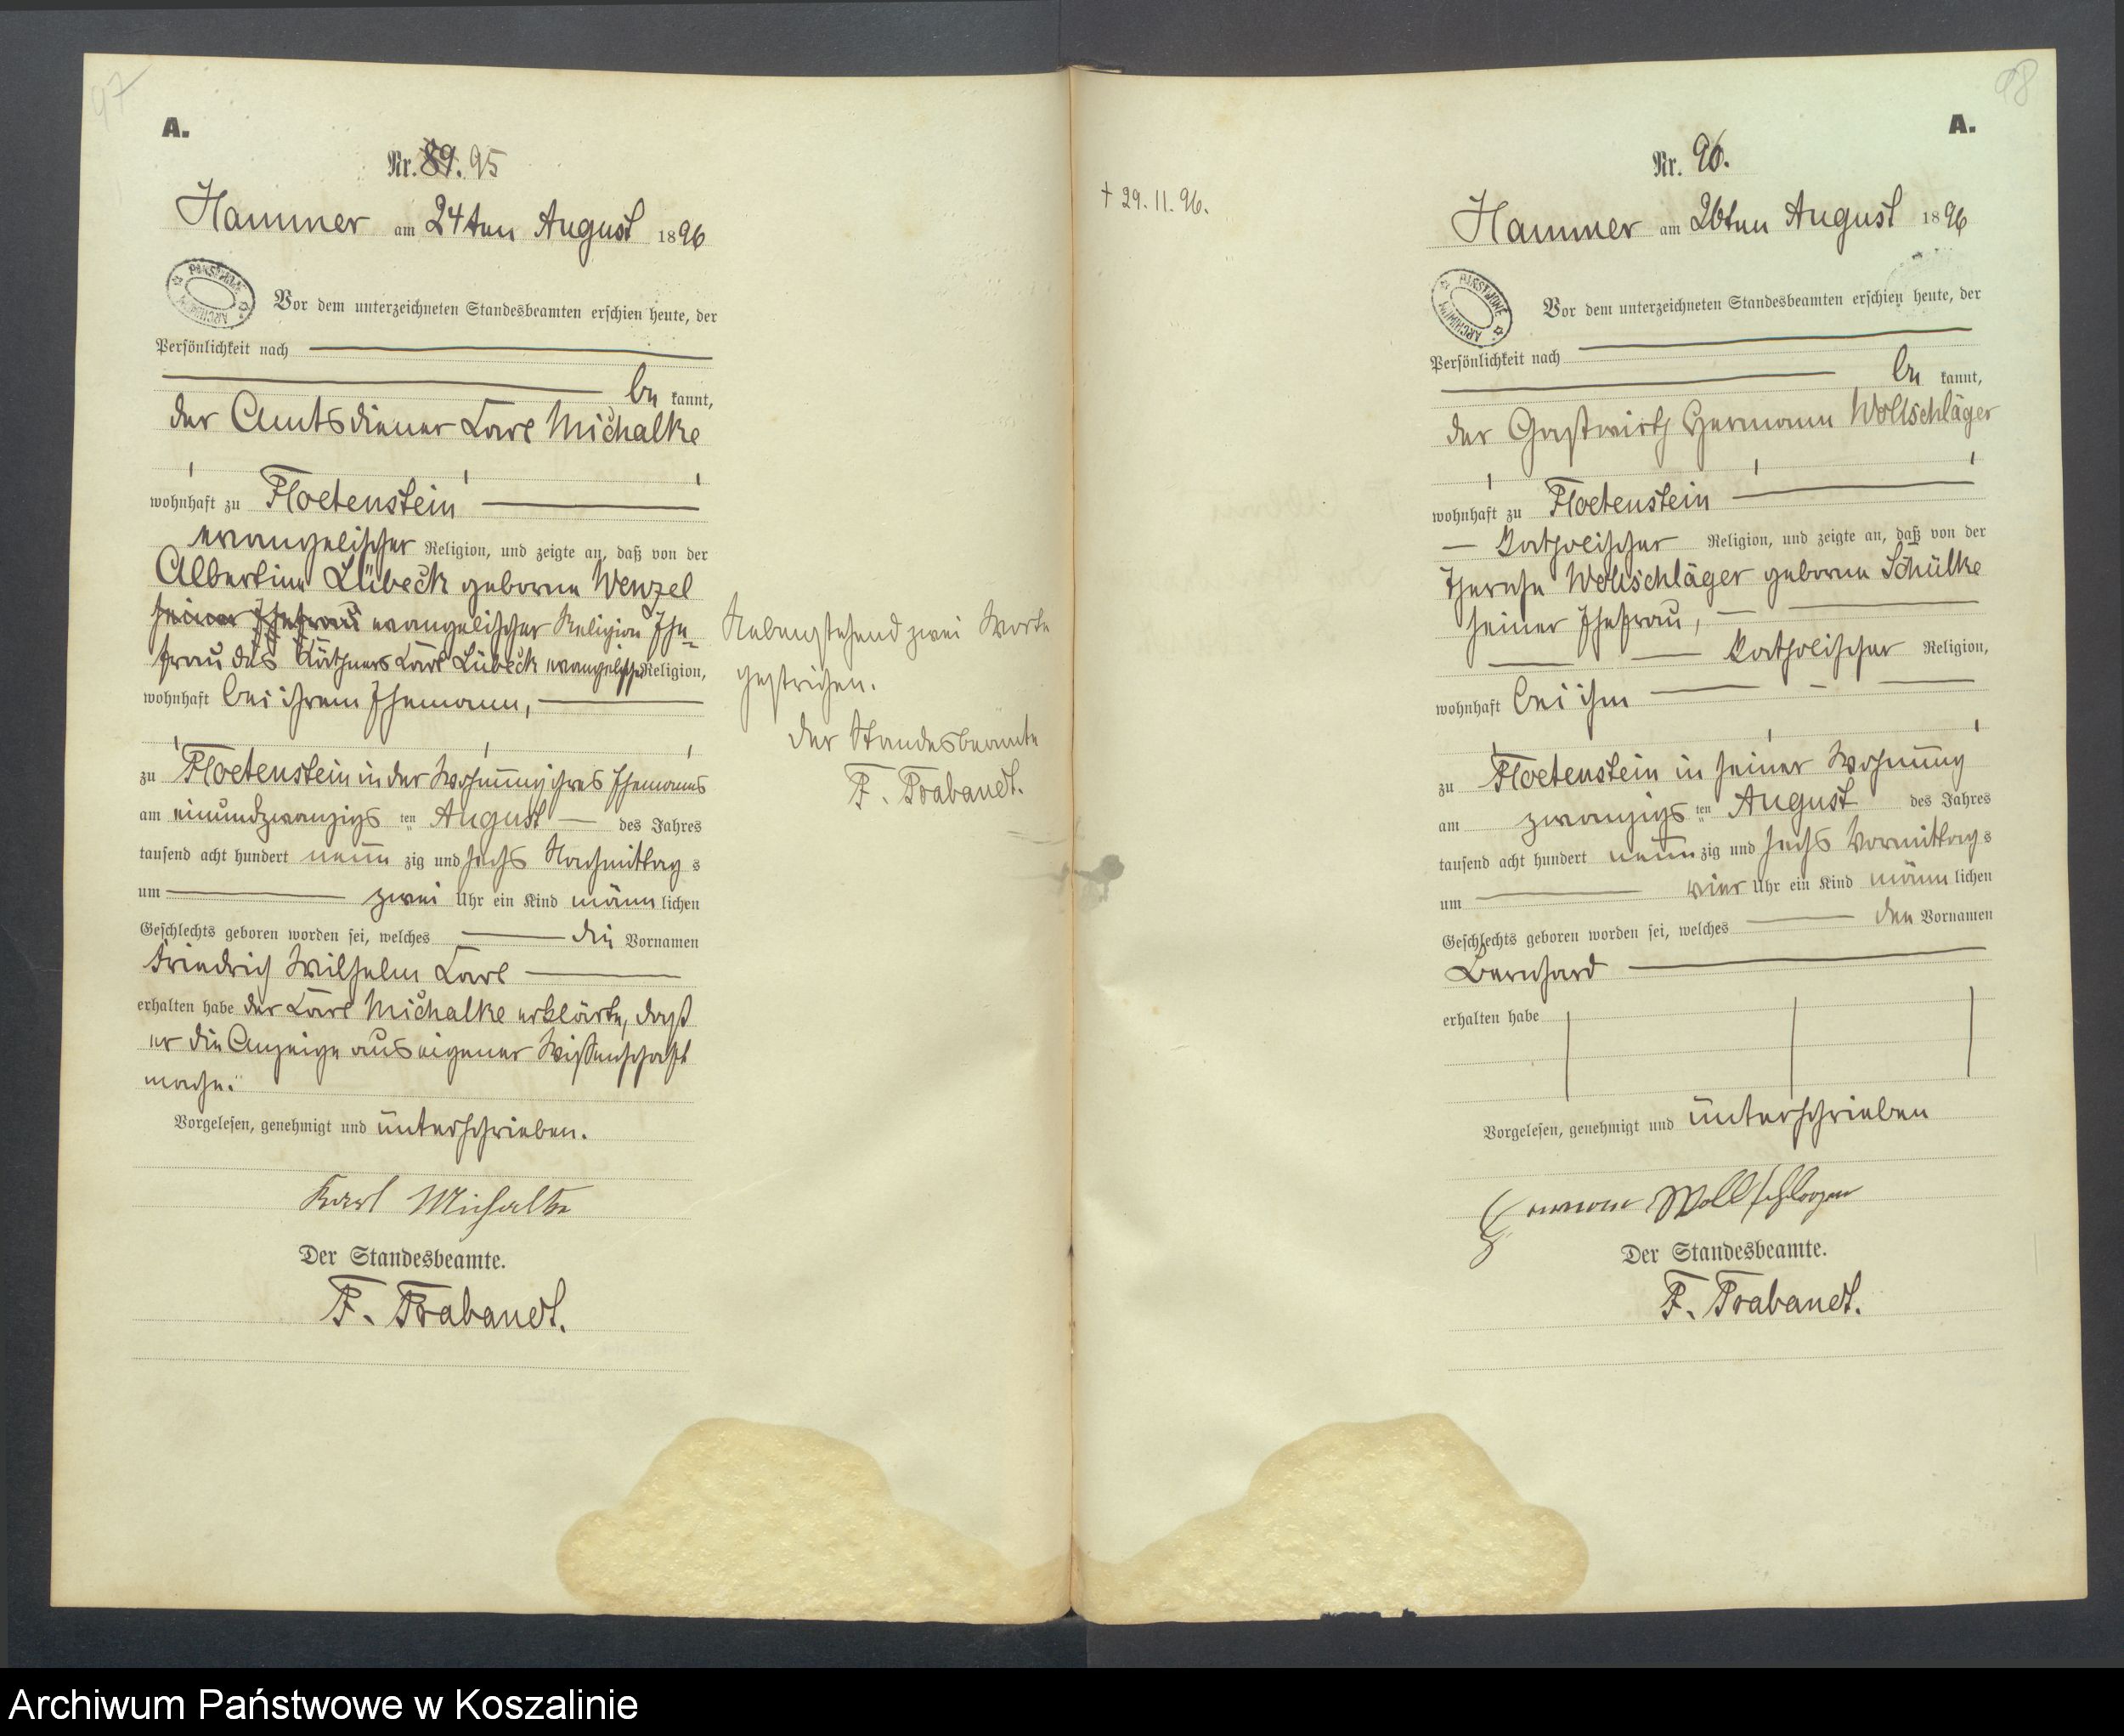 97
A.
Nr. 89. 95
Hammer am 24ten August 1896
Vor dem unterzeichneten Standesbeamten erschien heute, der
Persönlichkeit nach
be kannt,
der Amtsdiener Carl Michalke
wohnhaft zu Floetenstein
evangelischer Religion, und zeigte an, daß von der
Albertine Lübeck geborne Wenzel
seiner Ehefrau evangelischer Religion Ehe-
frau des Käthners Carl Lübeck evangelischer Religion,
wohnhaft bei ihrem Ehemann,
zu Floetenstein in der Wohnung ihres Ehemanns
am einundzwanzigs ten August des Jahres
tausend acht hundert neun zig und sechs Nachmittag s
um zwei Uhr ein Kind männ lichen
Geschlechts geboren worden sei, welches die Vornamen
Friedrich Wilhelm Carl
erhalten habe der Carl Michalke erklärte, daß
er die Anzeige aus eigener Wissenschaft
mache.
Vorgelesen, genehmigt und unterschrieben.
Karl Michalke
Der Standesbeamte.
F. Trabandt.
Nebenstehend zwei Worte
gestrichen.
Der Standesbeamte
F. Trabandt.
98
A.
† 29.11.96.
Nr. 96.
Hammer am 26ten August 1896
Vor dem unterzeichneten Standesbeamten erschien heute, der
Persönlichkeit nach
be kannt,
der Gastwirth Hermann Wollschläger
wohnhaft zu Floetenstein
katholischer Religion, und zeigte an, daß von der
Therese Wollschläger geborne Schülke
seiner Ehefrau,
katholischer Religion,
wohnhaft bei ihm
zu Floetenstein in seiner Wohnung
am zwanzigs ten August des Jahres
tausend acht hundert neun zig und sechs Vormittag s
um vier Uhr ein Kind männ lichen
Geschlechts geboren worden sei, welches den Vornamen
Bernhard
erhalten habe
Vorgelesen, genehmigt und unterschrieben
Hermann Wollschläger
Der Standesbeamte.
F. Trabandt.
Archiwum Państwowe w Koszalinie